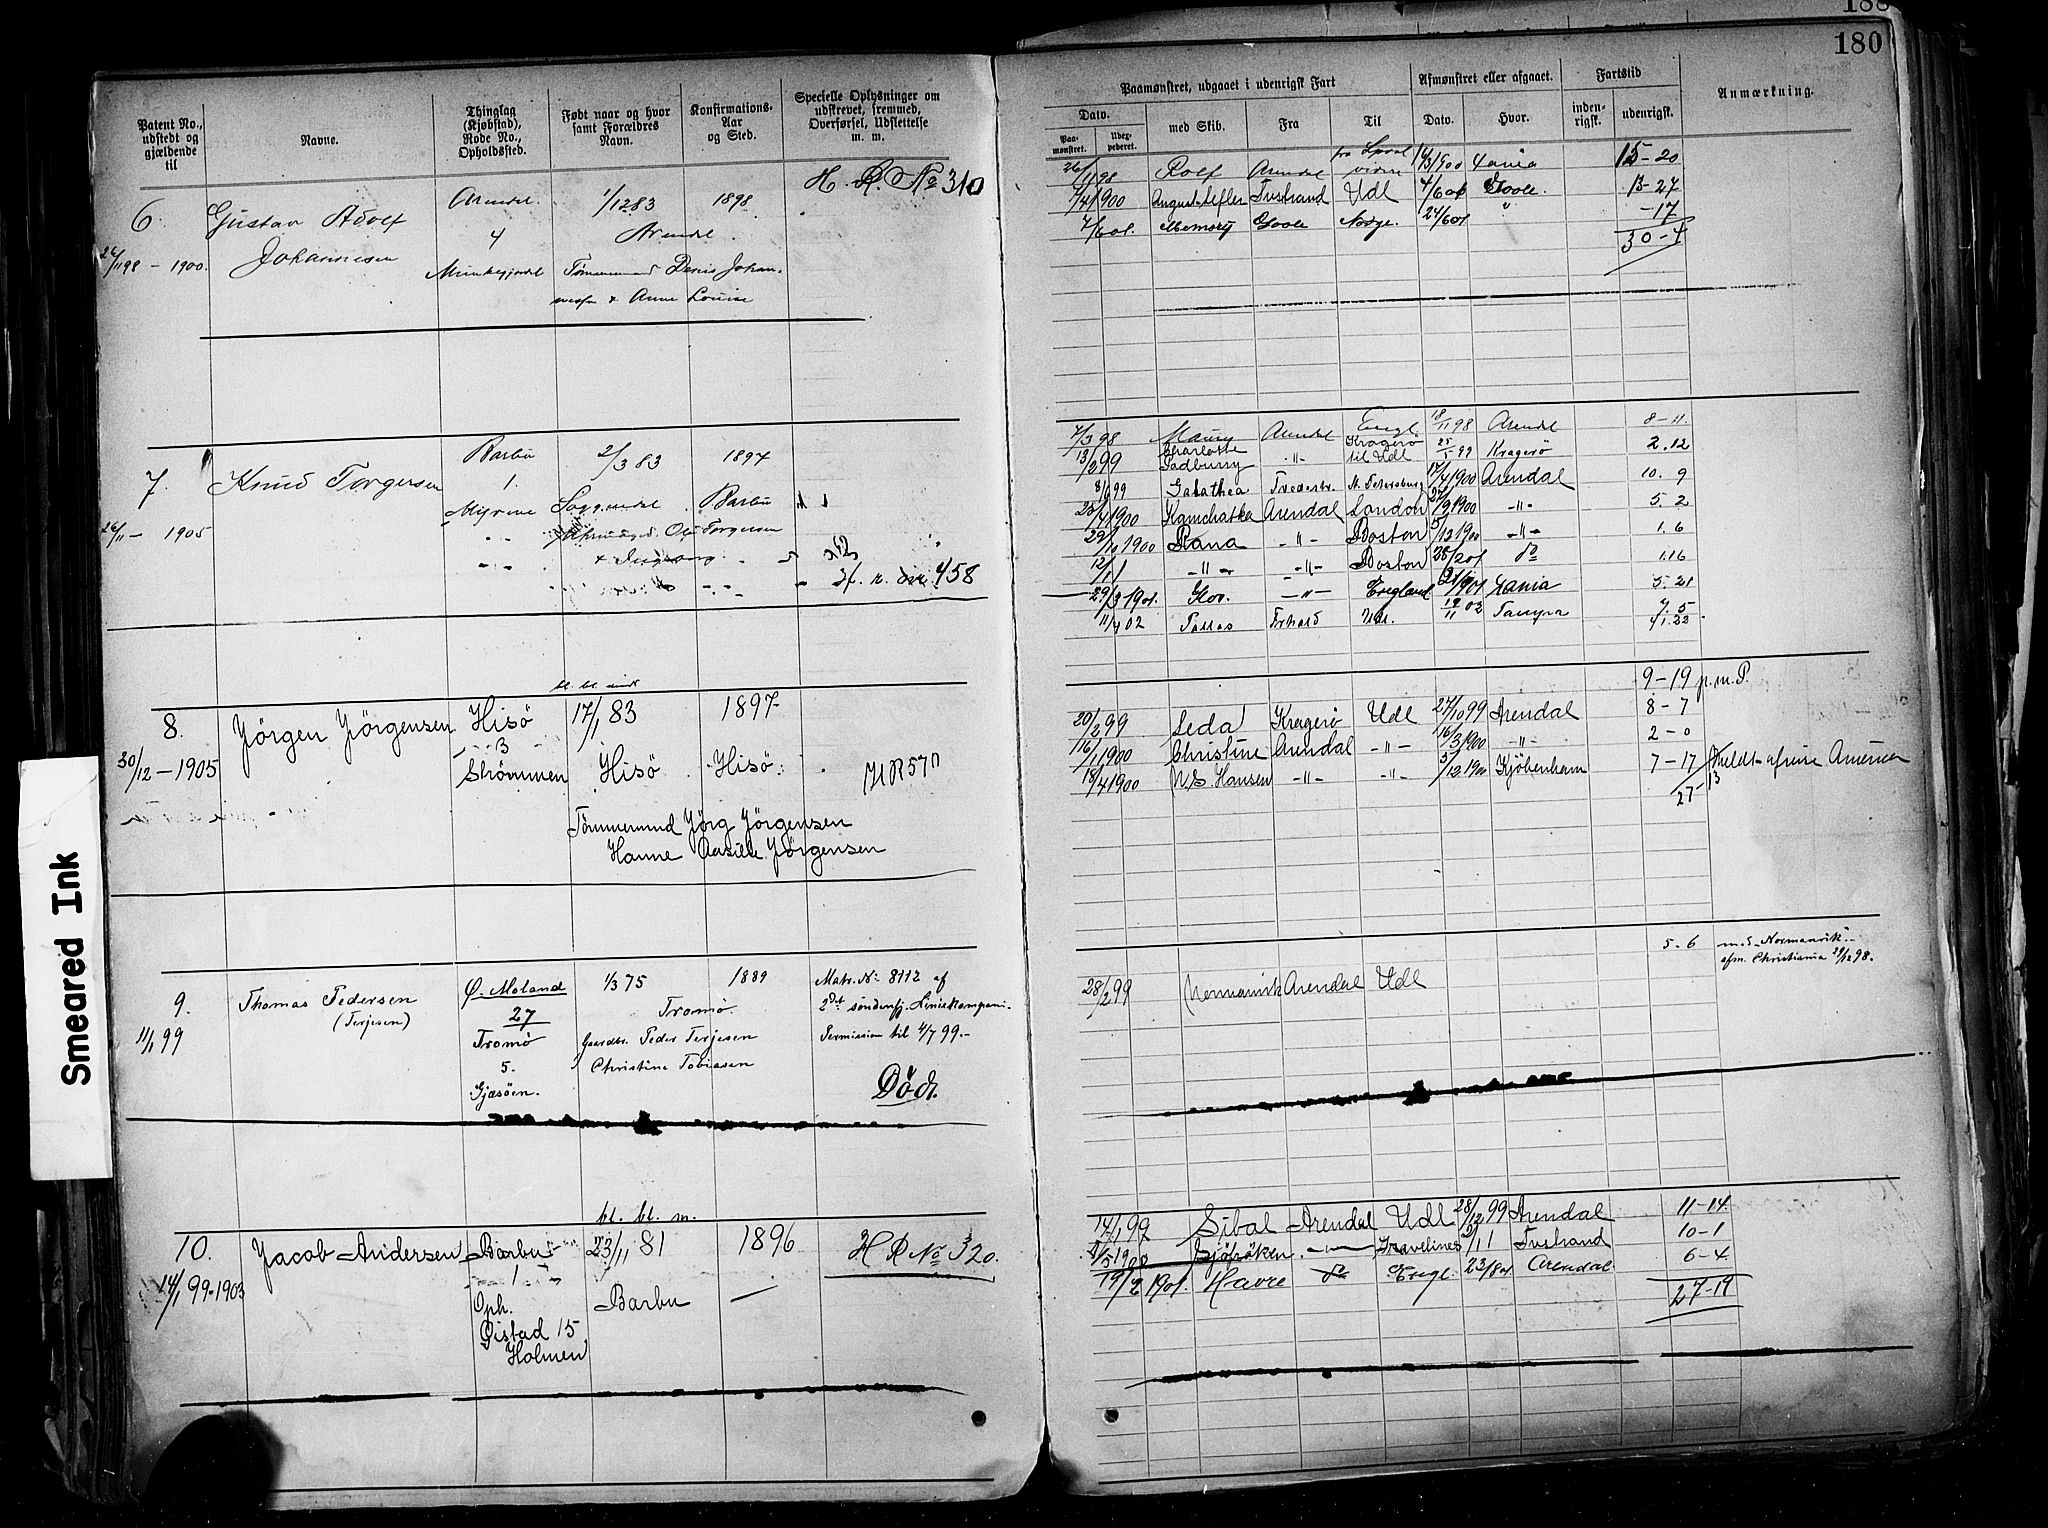 188
180
Patent No., udstedt og gjældende til
Navne.
Thinglag (Kjøbstad), Rode No., Opholdssted.
Født naar og hvor samt Forældres Navn.
Konfirmations- Aar og Sted.
Specielle Oplysninger om udskrevet, fremmed, Overførsel, Udslettelse m. m.
Paamønstret, udgaaet i udenrigsk Fart
Afmønstret eller afgaaet.
Fartstid
Anmærkning.
Dato.
Paa- mønstret.
Udex- pederet.
med Skib.
Fra
Til
Dato.
Hvor.
inden- rigsk.
udenrigsk.
6
Gustav Adolf
Johannesen
Arendal
4
1/12 83
Arendal
1898
H. R. No 310
26/11 98 - 1900.
Tømmermand Denis Johan-
nesen & Anne Louise
26/11 98 Rolf Arendal
15-20
7/4 1900 August Lefler Tvestrand Udl 4/6 01 Goole.
13-27
7/6 01. Memory Goole Norge. 24/6 01 "
-17
30-4
7.
Knud Torgersen
Barbu
1.
Myrene
2/3 83
1897
Barbu
26/11 - 1905
Ole Torgersen
458
7/3 98 Arendal Engl. 18/11 98 Arendal 8-11
13/2 99 Charlotte Padbury -"- Kragerø til Udl 25/5 99 Kragerø 2.12
8/6 99 Galathea Tvedestr. St. Petersburg 17/4 1900 Arendal 10. 9
23/4 1900 Kamchatka Arendal London 27/9 1900 -"- 5. 2
29/10 1900 Rana -"- Boston 5/12 1900 -"- 1. 6
12/1 -"- -"- Boston 28/2 01 do 1.16
29/3 1901. -"- England Xania 5. 21
11/4 02 Pallas Udl. 19/11 02 7. 5
41.22
bl. bl. midt
8.
Jörgen Jörgensen
Hisö
3
Strömmen
17/1 83
Hisö
1897
Hisö
30/12 - 1905
HR 570
Tömmermd Jörg Jörgensen
Hanne Aasille Jörgensen
9-19 p.m.P.
20/2 99 Leda Kragerö Udl 27/10 99 Arendal 8-7
16/1 1900 Christine Arendal -"- 16/3 1900 -"- 2-0
18/4 1900 N.S. Hansen -"- -"- 5/12 1900 Kjöbenham 7-17
27-13
9.
Thomas Pedersen
(Terjesen)
Ø. Moland
27
Tromø
5.
Gjæsöen.
1/3 75
Tromø.
Gaardbr. Peder Terjesen
Christine Tobiasen
1889
Matr. N: 8112 af
2det söndenfj. Liniekompani.
Permission til 4/7 99.-
Död.
11/1 99
5. 6
med "Normanvik".
afm. Christiania 29/12 98.
28/2 99 Normanvik Arendal Udl
bl. bl. m.
10.
Jacob Andersen
Barbu
1
Oph.
Øistad 15
Holmen
23/11 81
Barbu
1896
H R No 320.
14/1 99-1903
14/1 99 Sibal Arendal Udl 28/12 99 Arendal 11-14
8/5 1900 Sjöfröken -"- Gravelines 2/11 Tvstrand 10-1
19/2 1901. Havre do Engl. 23/8 01 Arendal 6-4
27-19
Smeared Ink